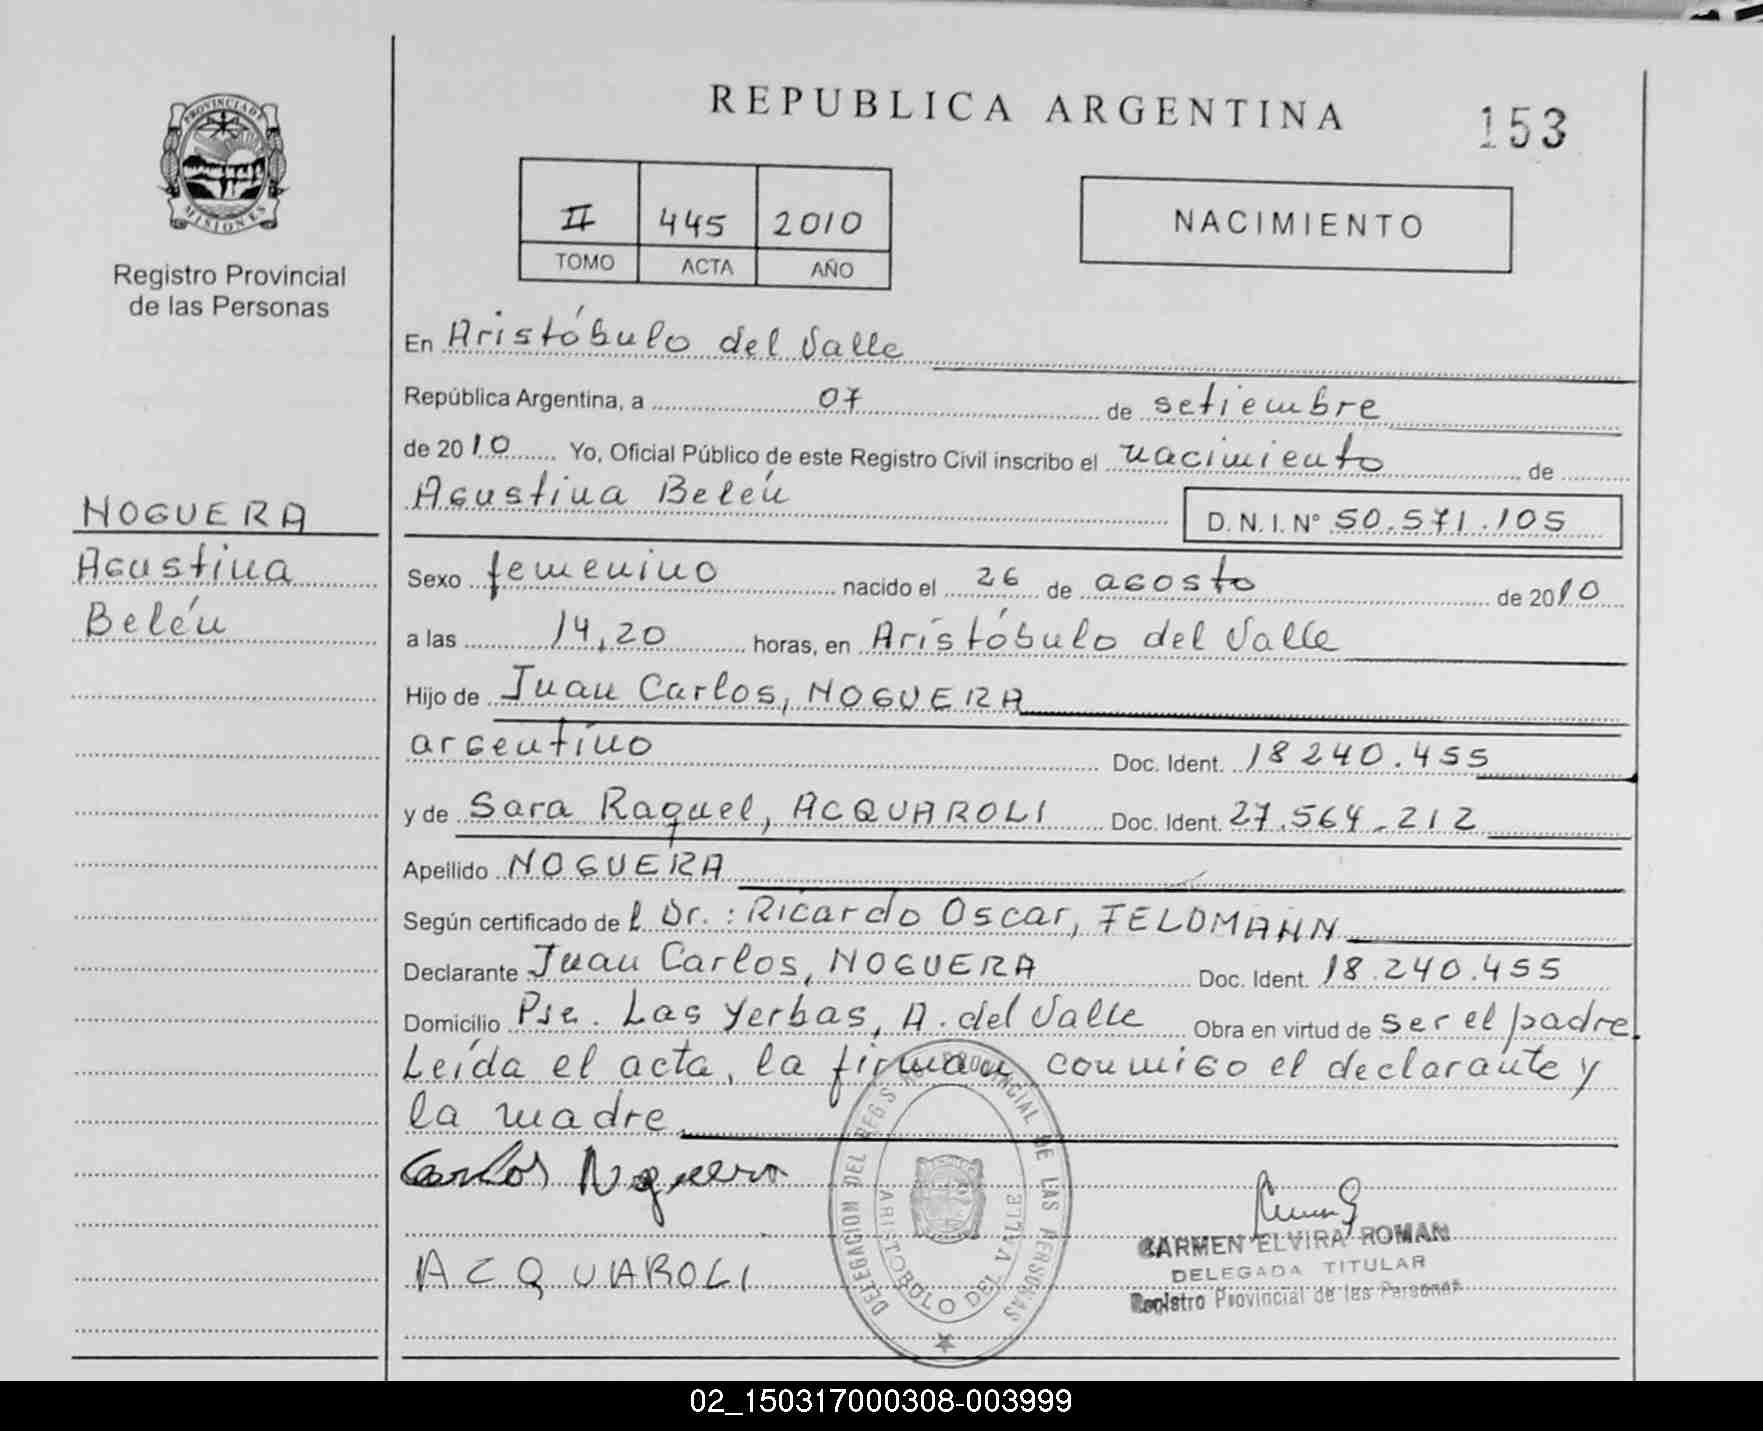 REPUBLICA ARGENTINA
153
PROVINCIA DE
MISIONES
Registro Provincial
de las Personas
II 445 2010
TOMO ACTA AÑO
NACIMIENTO
En Aristóbulo del Valle
República Argentina, a 07 de setiembre
de 2010 Yo, Oficial Público de este Registro Civil inscribo el nacimiento de
Agustina Belén D. N. I. Nº 50.571.105
NOGUERA
Agustina
Belén
Sexo femenino nacido el 26 de agosto de 2010
a las 14,20 horas, en Aristóbulo del Valle
Hijo de Juan Carlos, NOGUERA
argentino Doc. Ident. 18 240.455
y de Sara Raquel, ACQUAROLI Doc. Ident. 27.564.212
Apellido NOGUERA
Según certificado de l Dr.: Ricardo Oscar, FELDMANN
Declarante Juan Carlos, NOGUERA Doc. Ident. 18.240.455
Domicilio Pje. Las Yerbas, A. del Valle Obra en virtud de ser el padre.
Leída el acta, la firman conmigo el declarante y
la madre.
Carlos Noguera
ACQUAROLI
DELEGACION DEL REG.S PROVINCIAL DE LAS PERSONAS
ARISTOBOLO DEL VALLE
CARMEN ELVIRA ROMAN
DELEGADA TITULAR
Registro Provincial de las Personas
02_150317000308-003999